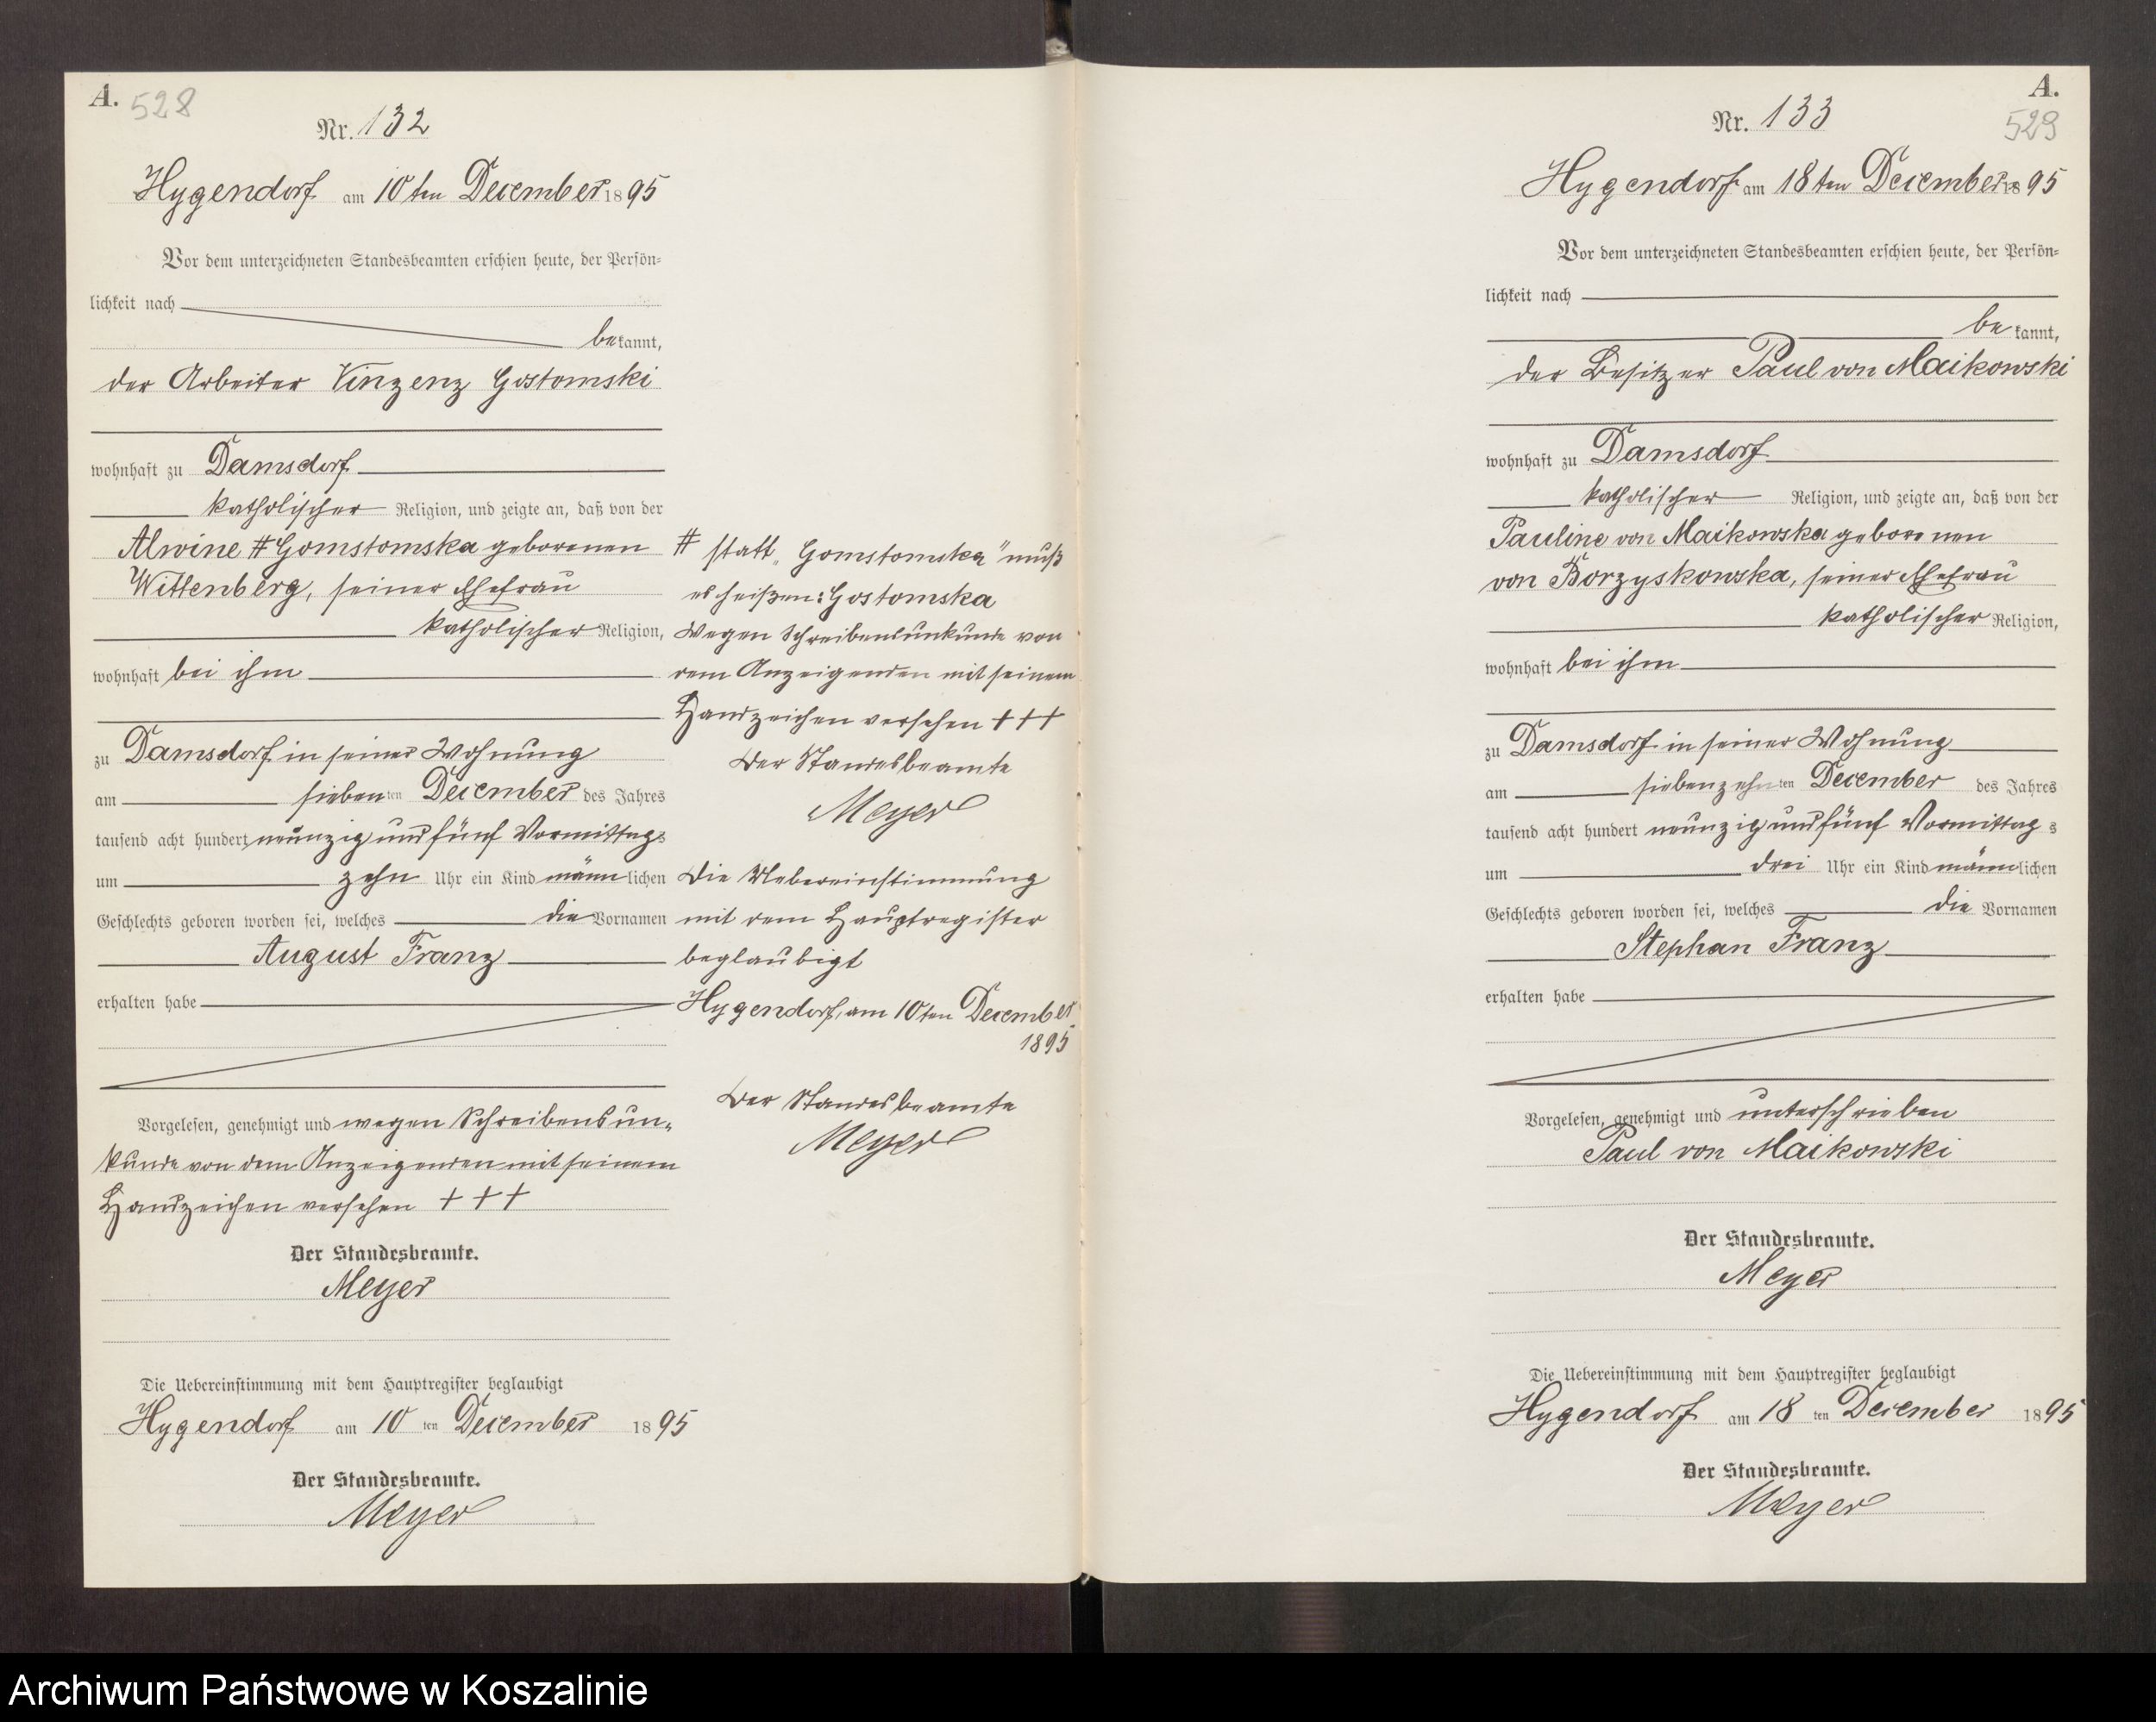 A. 528
Nr. 132
Hygendorf am 10ten December 1895
Vor dem unterzeichneten Standesbeamten erschien heute, der Persön-
lichkeit nach
bekannt,
der Arbeiter Vinzenz Gostomski
wohnhaft zu Damsdorf
katholischer Religion, und zeigte an, daß von der
Alwine # Gomstomska geborenen
Wittenberg, seiner Ehefrau
katholischer Religion,
wohnhaft bei ihm
zu Damsdorf in seiner Wohnung
am siebenten December des Jahres
tausend acht hundert neunzig und fünf Vormittags
um zehn Uhr ein Kind männlichen
Geschlechts geboren worden sei, welches die Vornamen
August Franz
erhalten habe
Vorgelesen, genehmigt und wegen Schreibensun-
kunde von dem Anzeigenden mit seinem
Handzeichen versehen + + +
Der Standesbeamte.
Meyer
Die Uebereinstimmung mit dem Hauptregister beglaubigt
Hygendorf am 10 ten December 1895
Der Standesbeamte.
Meyer
# statt „Gomstomska" muß
es heißen: Gostomska
Wegen Schreibensunkunde von
dem Anzeigenden mit seinem
Handzeichen versehen + + +
Der Standesbeamte
Meyer
Die Uebereinstimmung
mit dem Hauptregister
beglaubigt
Hygendorf, am 10ten December
1895
Der Standesbeamte
Meyer
A.
529
Nr. 133
Hygendorf am 18ten December 1895
Vor dem unterzeichneten Standesbeamten erschien heute, der Persön-
lichkeit nach
bekannt,
der Besitzer Paul von Maikowski
wohnhaft zu Damsdorf
katholischer Religion, und zeigte an, daß von der
Pauline von Maikowska geborenen
von Borzyskowska, seiner Ehefrau
katholischer Religion,
wohnhaft bei ihm
zu Damsdorf in seiner Wohnung
am siebenzehnten December des Jahres
tausend acht hundert neunzig und fünf Vormittags
um drei Uhr ein Kind männlichen
Geschlechts geboren worden sei, welches die Vornamen
Stephan Franz
erhalten habe
Vorgelesen, genehmigt und unterschrieben
Paul von Maikowski
Der Standesbeamte.
Meyer
Die Uebereinstimmung mit dem Hauptregister beglaubigt
Hygendorf am 18 ten December 1895
Der Standesbeamte.
Meyer
Archiwum Państwowe w Koszalinie